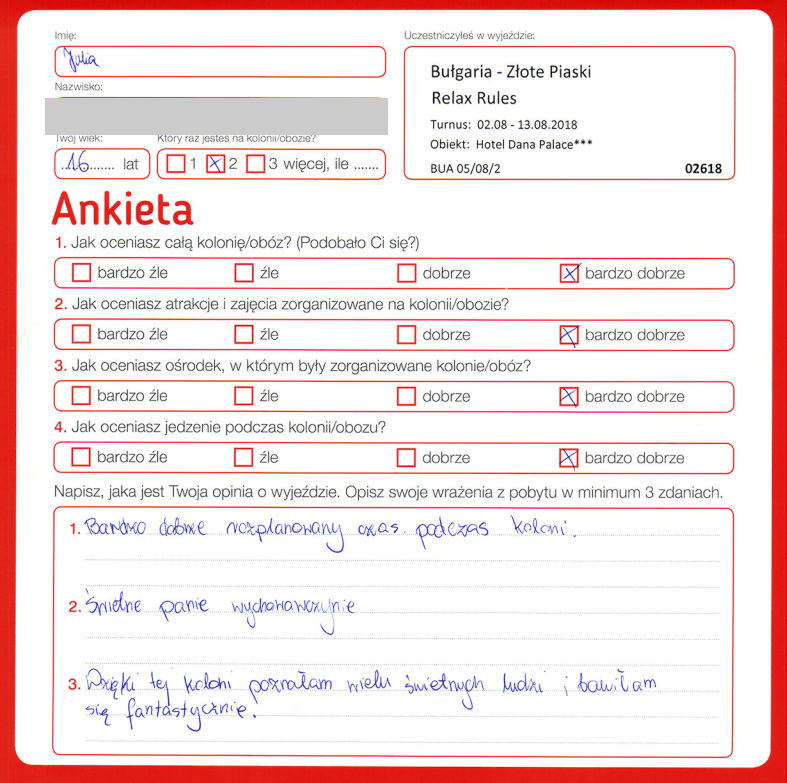 Imię:
Julia
Nazwisko:
Twój wiek:
16 lat
Który raz jesteś na kolonii/obozie?
1 2 3 więcej, ile .......
Uczestniczyłeś w wyjeździe:
Bułgaria - Złote Piaski
Relax Rules
Turnus: 02.08 - 13.08.2018
Obiekt: Hotel Dana Palace***
BUA 05/08/2 02618
Ankieta
1. Jak oceniasz całą kolonię/obóz? (Podobało Ci się?)
bardzo źle źle dobrze bardzo dobrze
2. Jak oceniasz atrakcje i zajęcia zorganizowane na kolonii/obozie?
bardzo źle źle dobrze bardzo dobrze
3. Jak oceniasz ośrodek, w którym były zorganizowane kolonie/obóz?
bardzo źle źle dobrze bardzo dobrze
4. Jak oceniasz jedzenie podczas kolonii/obozu?
bardzo źle źle dobrze bardzo dobrze
Napisz, jaka jest Twoja opinia o wyjeździe. Opisz swoje wrażenia z pobytu w minimum 3 zdaniach.
1. Bardzo dobrze rozplanowany czas podczas koloni.
2. Świetne panie wychowawczynie
3. Dzięki tej koloni poznałam wielu świetnych ludzi i bawiłam
się fantastycznie.